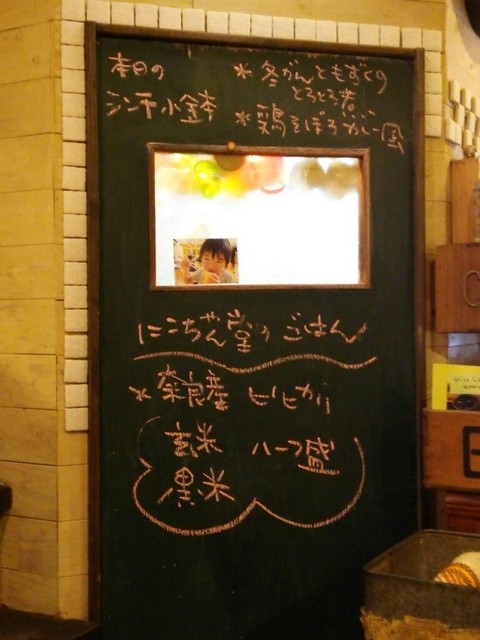 本日の
ジンチ小鉢
* 冬がんともずくの
とろとろ煮
* 鶏そぼろカレー風
にこちゃん堂の ごはん
* 奈良産 ヒノヒカリ
玄米 ハーフ盛
黒米